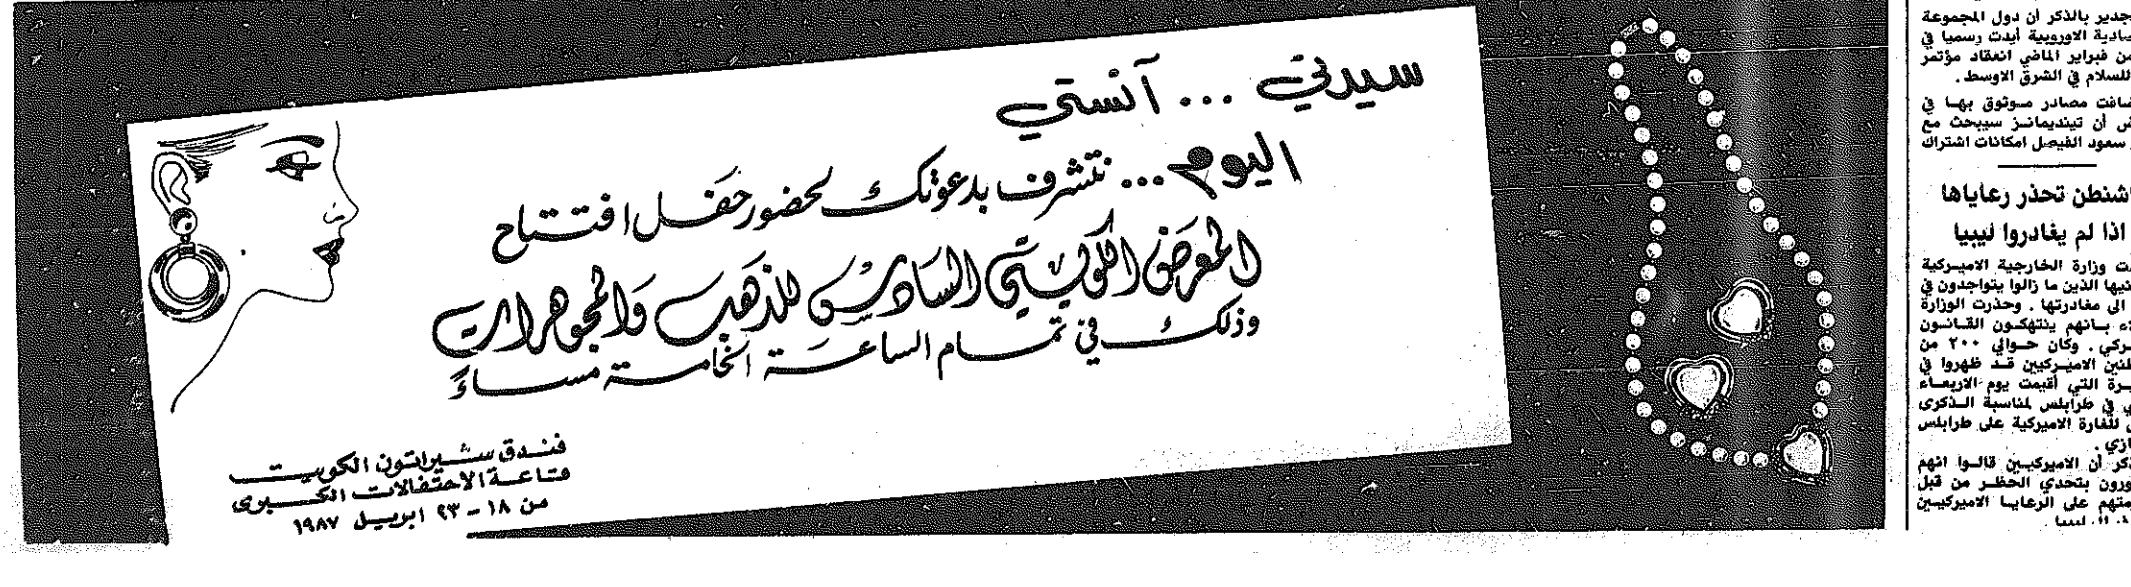 سيدتي ... آنستي
اليوم ... نتشرف بدعوتك لحضور حفل افتتاح
المعرض الكويتي السادس للذهب والمجوهرات
وذلك في تمام الساعة الخامسة مساءً
فندق شيراتون الكويت
قاعة الاحتفالات الكبرى
من ١٨ - ٢٣ ابريل ١٩٨٧
جدير بالذكر أن دول المجموعة
صادية الاوروبية أيدت رسميا في
من فبراير الماضي انعقاد مؤتمر
للسلام في الشرق الاوسط .
ضافت مصادر موثوق بها في
أن تينديمانز سيبحث مع
سعود الفيصل امكانات اشتراك
شنطن تحذر رعاياها
اذا لم يغادروا ليبيا
ت وزارة الخارجية الاميركية
نيها الذين ما زالوا يتواجدون في
الى مغادرتها . وحذرت الوزارة
لاء بانهم ينتهكون القانون
ركي . وكان حوالي ٢٠٠ من
طنين الاميركيين قد ظهروا في
يرة التي أقيمت يوم الاربعاء
ي في طرابلس لمناسبة الذكرى
للغارة الاميركية على طرابلس
ازي .
ذكر أن الاميركيين قالوا انهم
ورون بتحدي الحظر من قبل
متهم على الرعايا الاميركيين